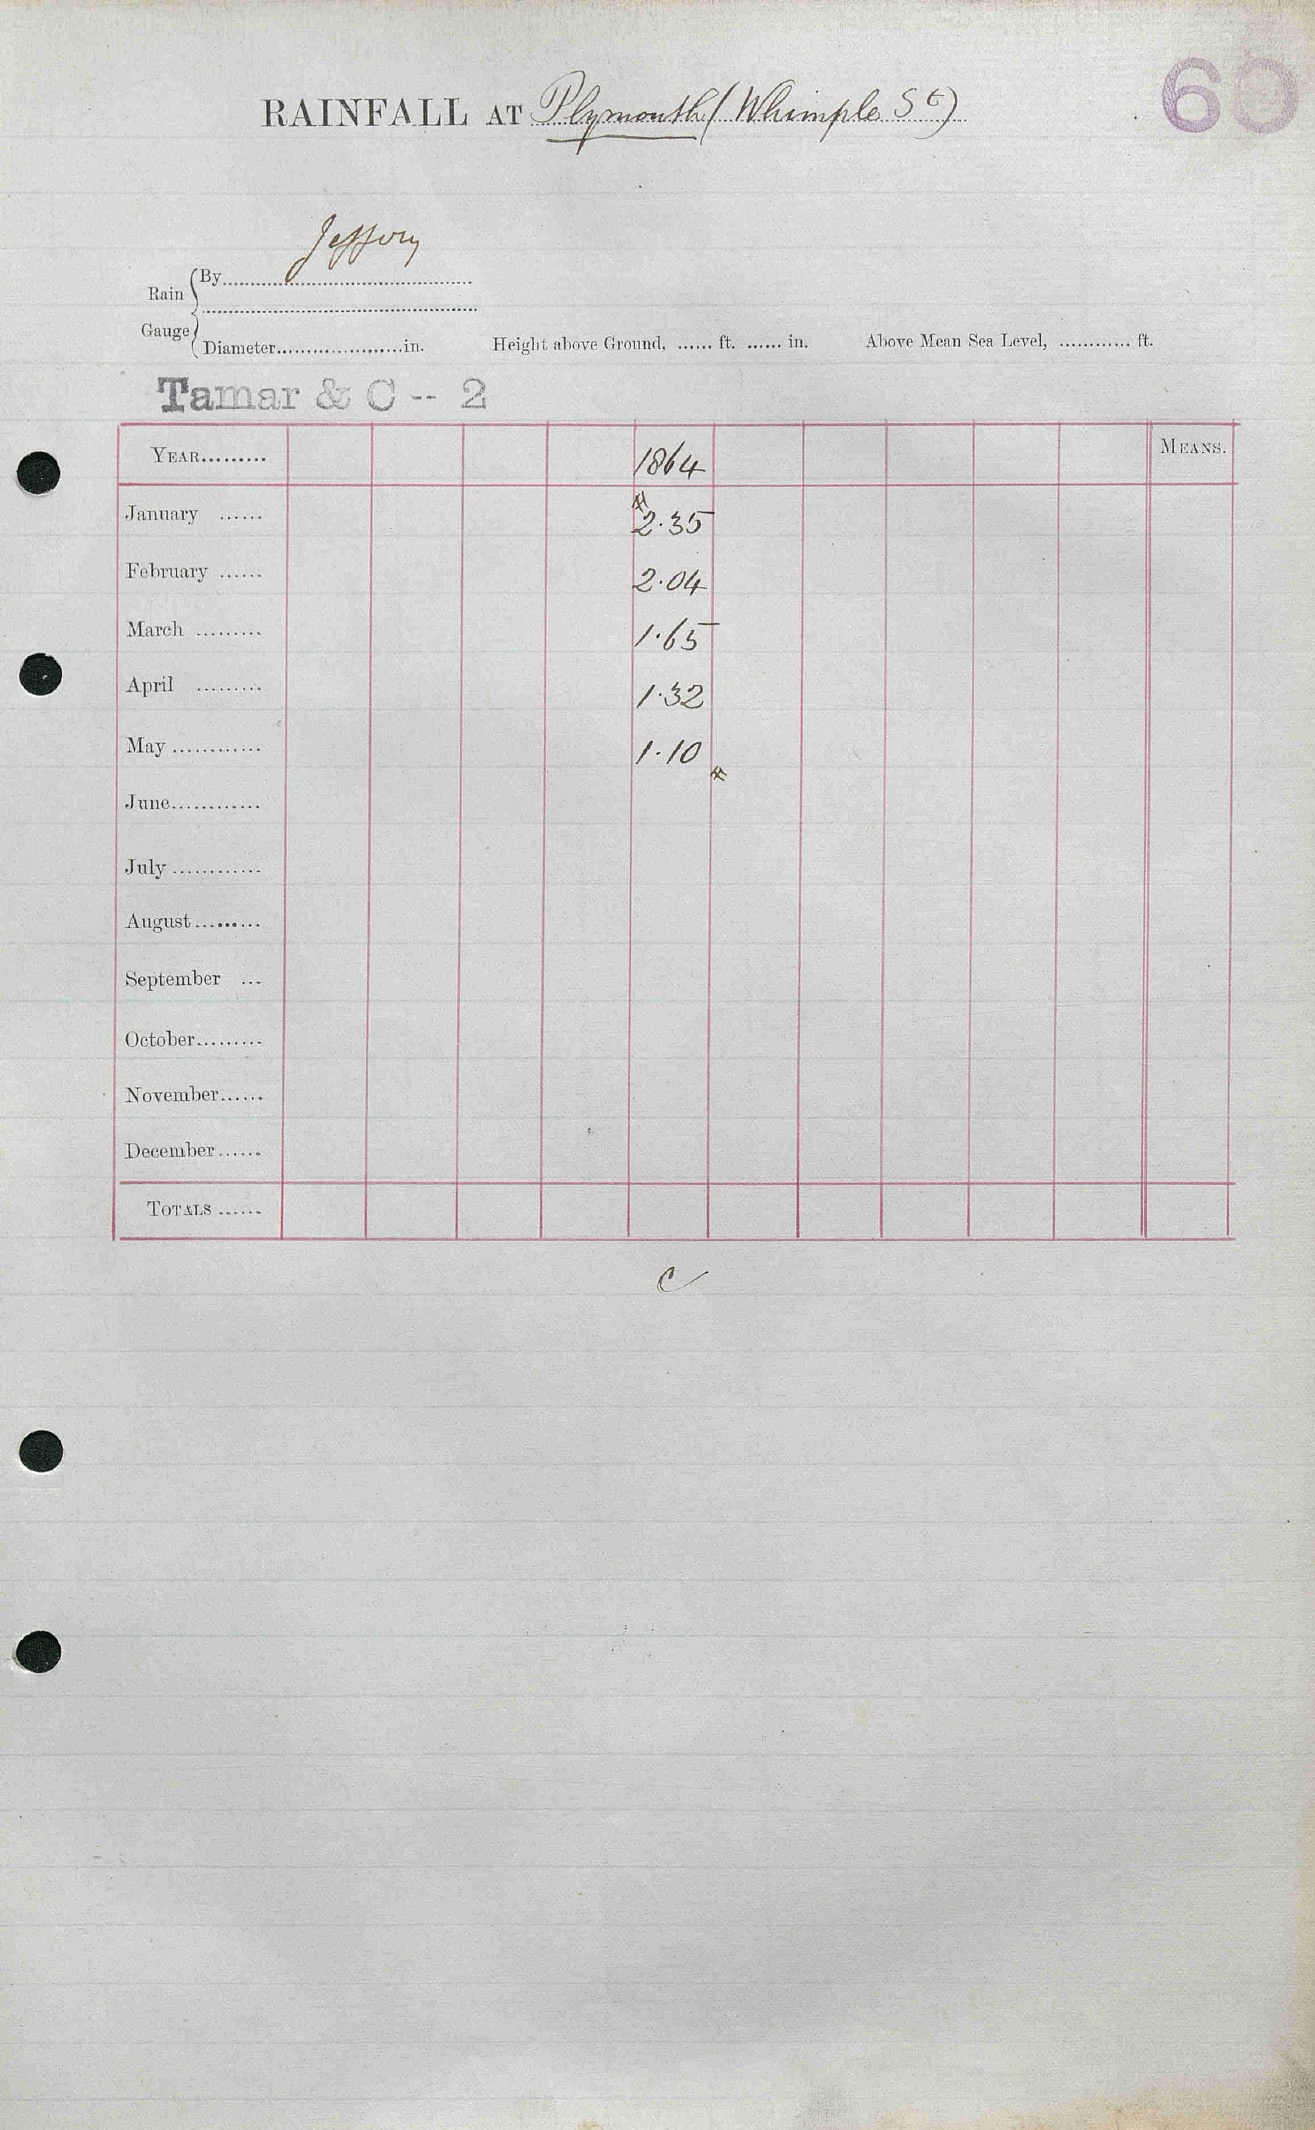 60
RAINFALL AT Plymouth (Whimple St)
Jeffery
Rain Gauge
By
Diameter in. Height above Ground, ...... ft. ...... in. Above Mean Sea Level, ............ ft.
Tamar & C -- 2
YEAR......... 1864 MEANS.
January ...... 2.35
February ...... 2.04
March ......... 1.65
April ......... 1.32
May ............ 1.10
June............
July ............
August.........
September ...
October.........
November......
December......
TOTALS ......
C